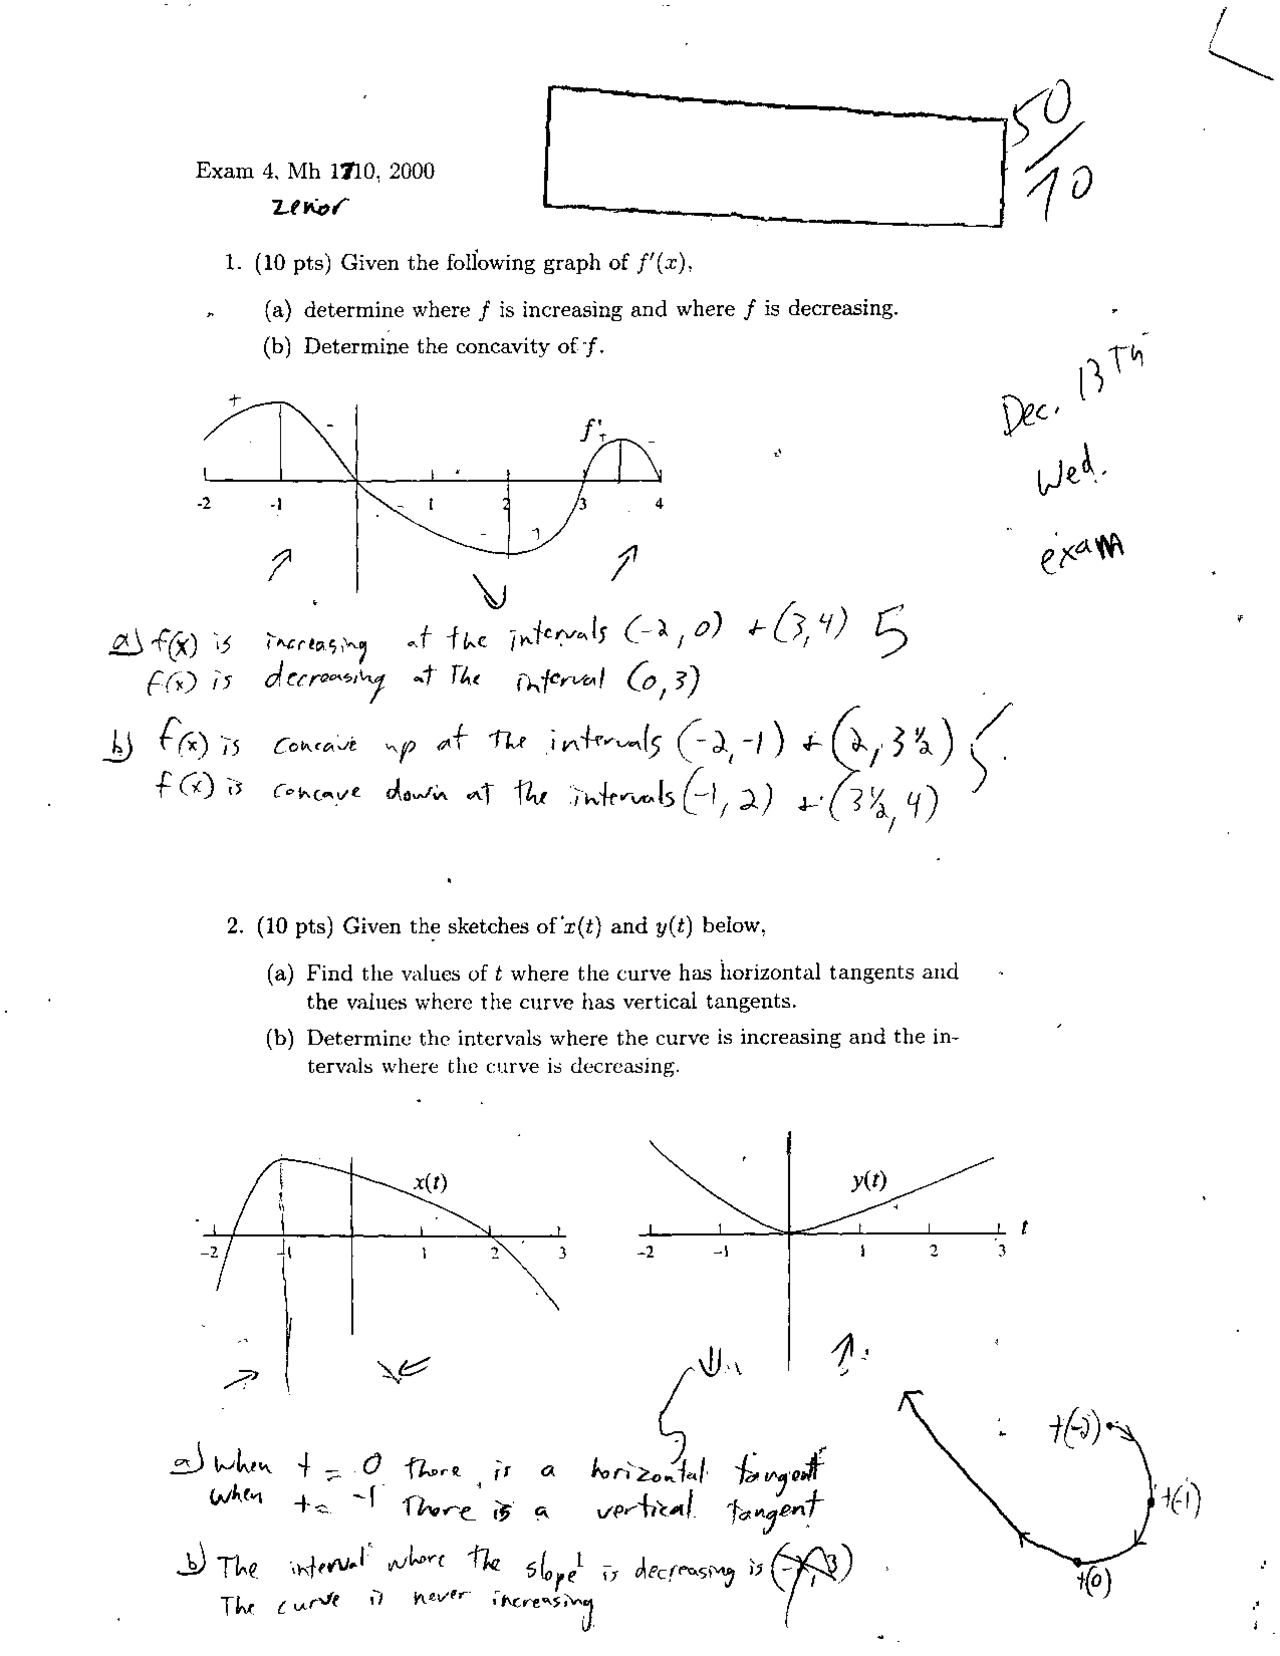 50/70
Exam 4, Mh 1710, 2000
Zenor
1. (10 pts) Given the following graph of f'(x),
(a) determine where f is increasing and where f is decreasing.
(b) Determine the concavity of f.
Dec. 13Th
Wed.
exam
+ - f' + -
-2 -1 1 2 3 4
a) f(x) is increasing at the intervals (-2, 0) + (3,4) 5
f(x) is decreasing at The interval (0,3)
b) f(x) is concave up at the intervals (-2,-1) + (2, 3½) 5
f(x) is concave down at the intervals (-1, 2) + (3½, 4)
2. (10 pts) Given the sketches of x(t) and y(t) below,
(a) Find the values of t where the curve has horizontal tangents and
the values where the curve has vertical tangents.
(b) Determine the intervals where the curve is increasing and the in-
tervals where the curve is decreasing.
x(t) y(t)
-2 -1 1 2 3 -2 -1 1 2 3 t
t(-2)
a) when t = 0 there is a horizontal tangent
when t = -1 There is a vertical tangent
t(-1)
b) The interval where the slope is decreasing is
t(0)
The curve is never increasing